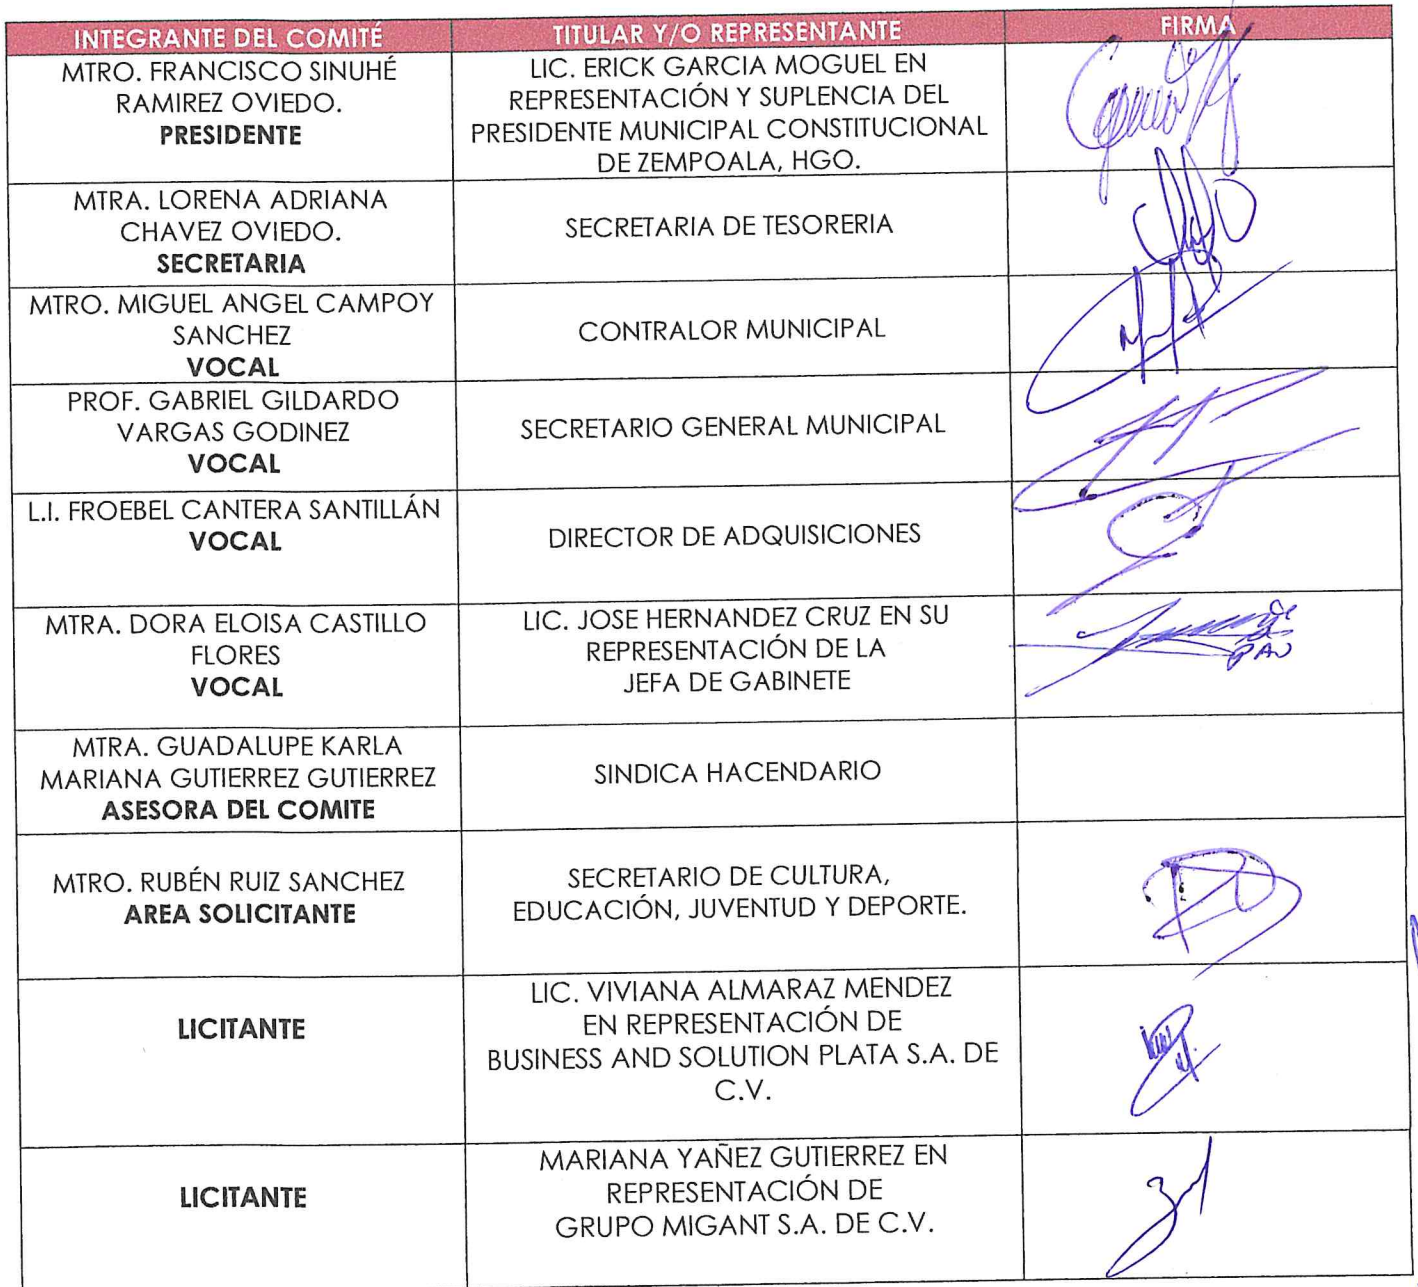 INTEGRANTE DEL COMITÉ
TITULAR Y/O REPRESENTANTE
FIRMA
MTRO. FRANCISCO SINUHÉ
RAMIREZ OVIEDO.
PRESIDENTE
LIC. ERICK GARCIA MOGUEL EN
REPRESENTACIÓN Y SUPLENCIA DEL
PRESIDENTE MUNICIPAL CONSTITUCIONAL
DE ZEMPOALA, HGO.
MTRA. LORENA ADRIANA
CHAVEZ OVIEDO.
SECRETARIA
SECRETARIA DE TESORERIA
MTRO. MIGUEL ANGEL CAMPOY
SANCHEZ
VOCAL
CONTRALOR MUNICIPAL
PROF. GABRIEL GILDARDO
VARGAS GODINEZ
VOCAL
SECRETARIO GENERAL MUNICIPAL
L.I. FROEBEL CANTERA SANTILLÁN
VOCAL
DIRECTOR DE ADQUISICIONES
MTRA. DORA ELOISA CASTILLO
FLORES
VOCAL
LIC. JOSE HERNANDEZ CRUZ EN SU
REPRESENTACIÓN DE LA
JEFA DE GABINETE
MTRA. GUADALUPE KARLA
MARIANA GUTIERREZ GUTIERREZ
ASESORA DEL COMITE
SINDICA HACENDARIO
MTRO. RUBÉN RUIZ SANCHEZ
AREA SOLICITANTE
SECRETARIO DE CULTURA,
EDUCACIÓN, JUVENTUD Y DEPORTE.
LICITANTE
LIC. VIVIANA ALMARAZ MENDEZ
EN REPRESENTACIÓN DE
BUSINESS AND SOLUTION PLATA S.A. DE
C.V.
LICITANTE
MARIANA YAÑEZ GUTIERREZ EN
REPRESENTACIÓN DE
GRUPO MIGANT S.A. DE C.V.